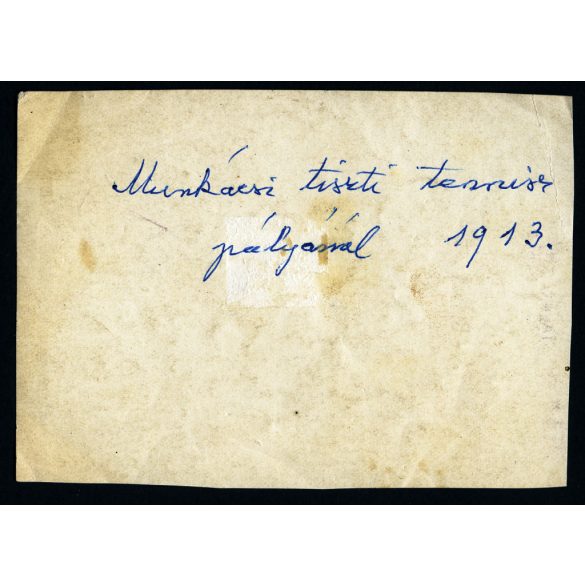 Munkácsi tiszti tennisz
pályánál 1913.